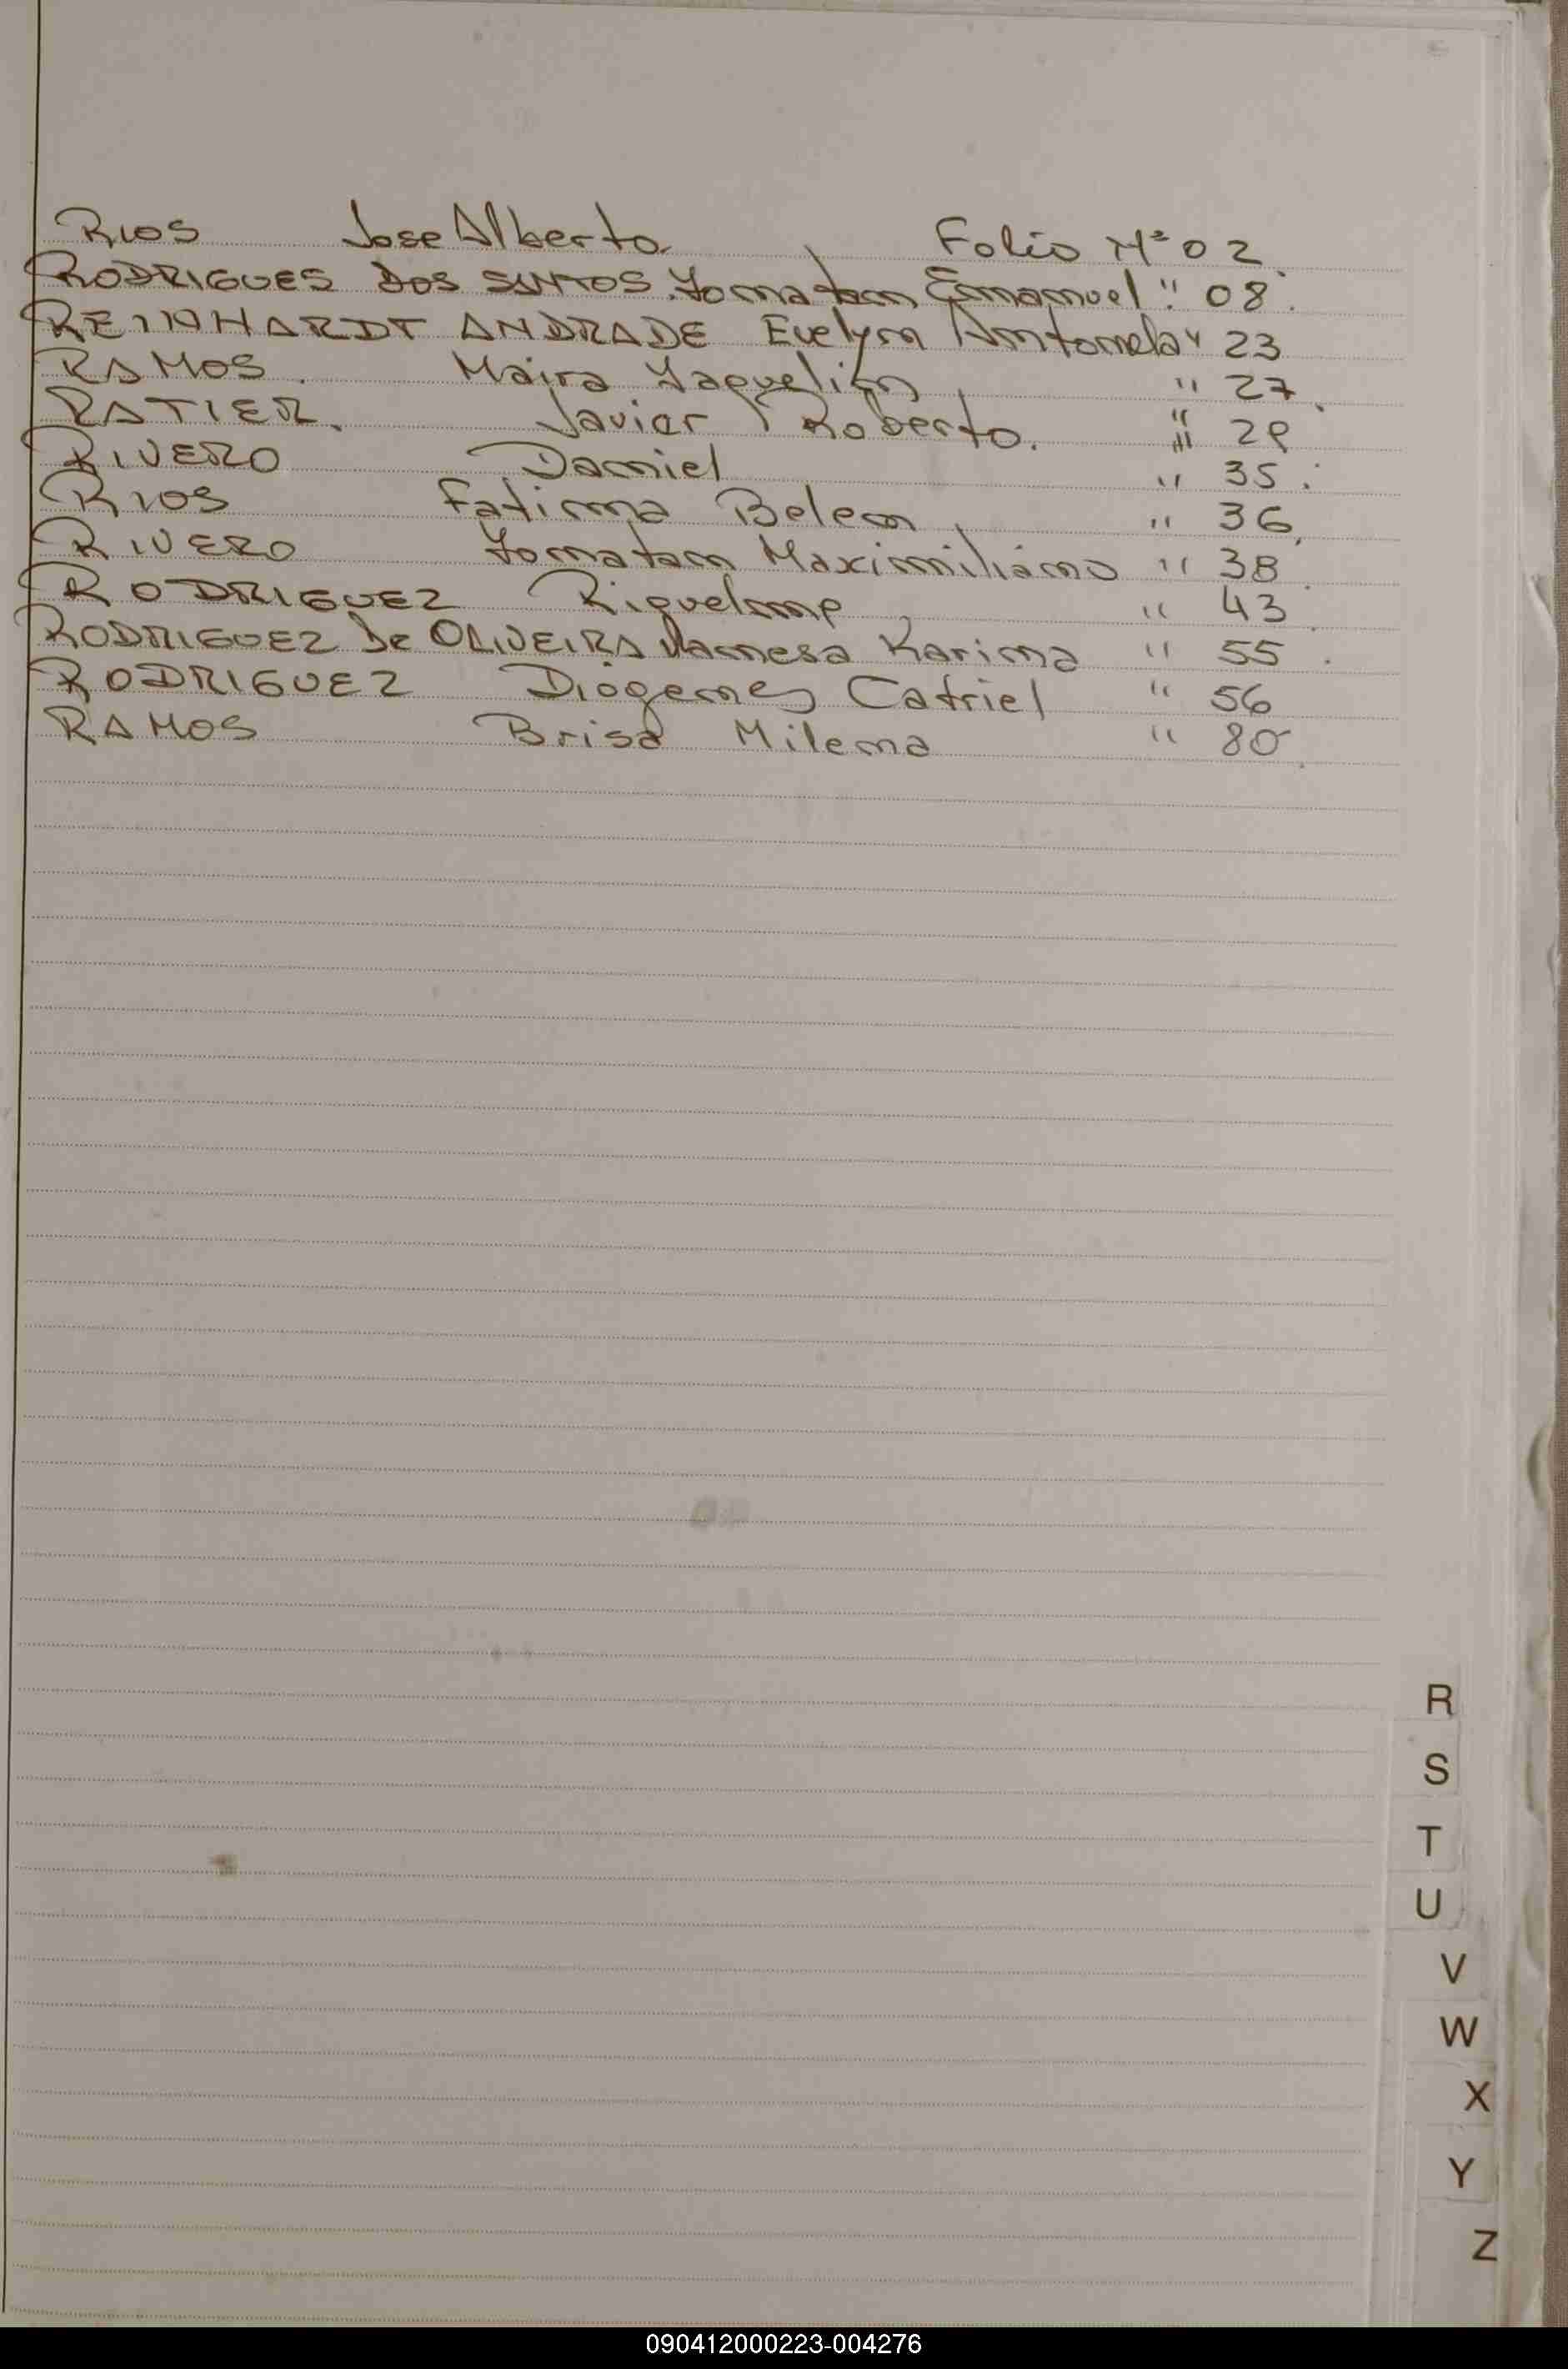 RIOS Jose Alberto. Folio Nº 02.
RODRIGUES DOS SANTOS. Yonatan Emanuel " 08.
REINHARDT ANDRADE Evelyn Antonela " 23
RAMOS. Maira Yaquelin " 27.
RATIER. Javier Roberto. " 29
RIVERO Daniel " 35.
RIOS Fatima Belen. " 36.
RIVERO Yonatan Maximiliano " 38.
RODRIGUEZ Riquelme " 43.
RODRIGUEZ De OLIVEIRA Vanesa Karina " 55.
RODRIGUEZ Diogenes Catriel " 56
RAMOS Brisa Milena " 80.
R
S
T
U
V
W
X
Y
Z
090412000223-004276